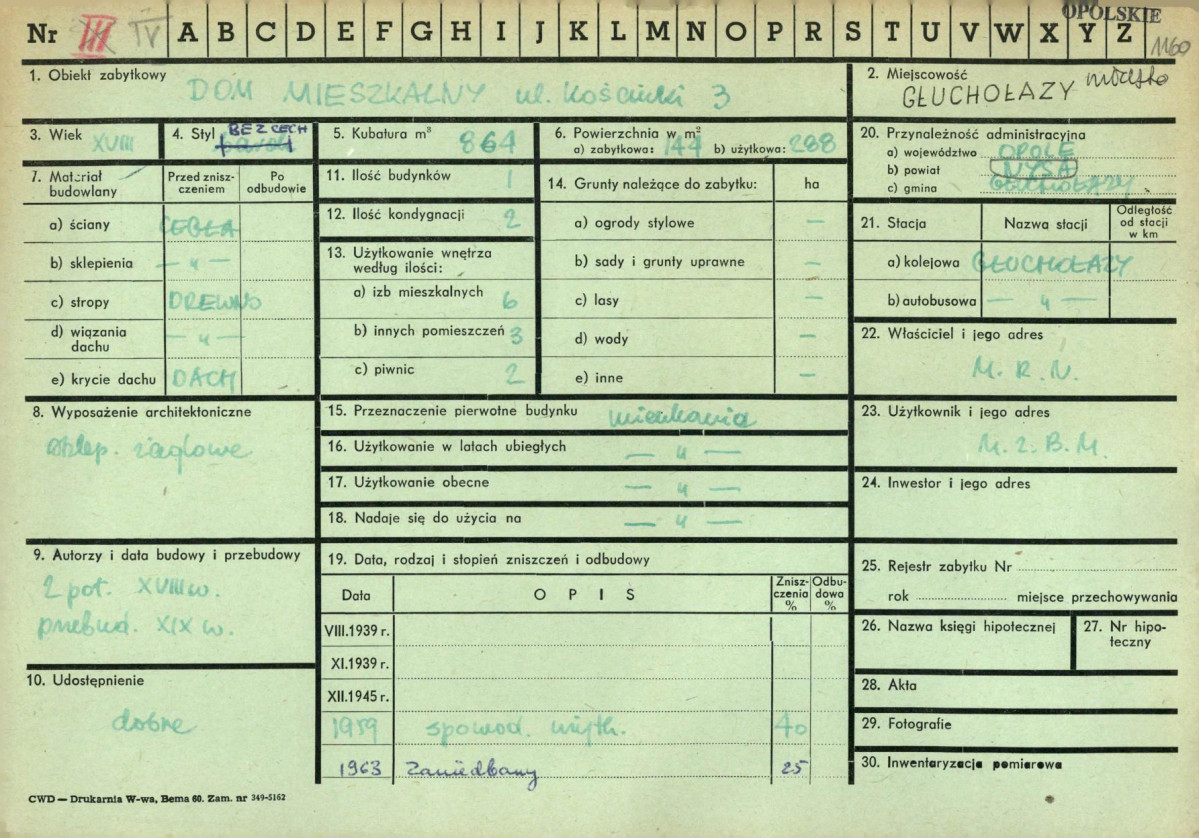 OPOLSKIE
Nr III IV A B C D E F G H I J K L M N O P R S T U V W X Y Z
1160
1. Obiekt zabytkowy
DOM MIESZKALNY ul. Kościuki 3
2. Miejscowość miasto
GŁUCHOŁAZY
3. Wiek XVIII
4. Styl BEZ CECH
5. Kubatura m³ 864
6. Powierzchnia w m²
a) zabytkowa: 144 b) użytkowa: 288
7. Materiał budowlany
Przed zniszczeniem
Po odbudowie
a) ściany CEGŁA
b) sklepienia — „ —
c) stropy DREWNO
d) wiązania dachu — „ —
e) krycie dachu DACH
8. Wyposażenie architektoniczne
sklep. żaglowe
9. Autorzy i data budowy i przebudowy
2 poł. XVIII w.
przebud. XIX w.
10. Udostępnienie
dobre
11. Ilość budynków 1
12. Ilość kondygnacji 2
13. Użytkowanie wnętrza według ilości:
a) izb mieszkalnych 6
b) innych pomieszczeń 3
c) piwnic 2
14. Grunty należące do zabytku: ha
a) ogrody stylowe —
b) sady i grunty uprawne —
c) lasy —
d) wody —
e) inne —
15. Przeznaczenie pierwotne budynku mieszkania
16. Użytkowanie w latach ubiegłych — „ —
17. Użytkowanie obecne — „ —
18. Nadaje się do użycia na — „ —
19. Data, rodzaj i stopień zniszczeń i odbudowy
Data OPIS Zniszczenia % Odbudowa %
VIII.1939 r.
XI.1939 r.
XII.1945 r.
1959 spowod. użytk. 40
1963 Zaniedbany 25
20. Przynależność administracyjna
a) województwo OPOLE
b) powiat NYSA
c) gmina GŁUCHOŁAZY
21. Stacja Nazwa stacji Odległość od stacji w km
a) kolejowa GŁUCHOŁAZY
b) autobusowa — „ —
22. Właściciel i jego adres
M. R. N.
23. Użytkownik i jego adres
M. Z. B. M.
24. Inwestor i jego adres
25. Rejestr zabytku Nr
rok miejsce przechowywania
26. Nazwa księgi hipotecznej
27. Nr hipoteczny
28. Akta
29. Fotografie
30. Inwentaryzacja pomiarowa
CWD — Drukarnia W-wa, Bema 60. Zam. nr 349-5162